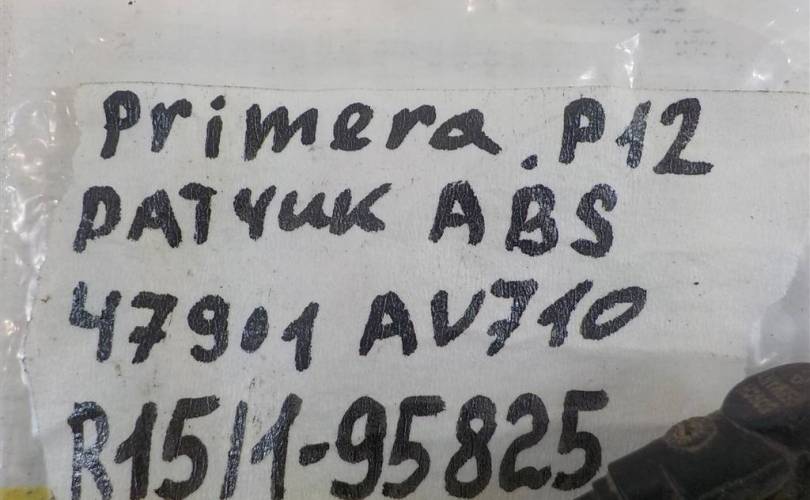 Primera. P12
DАТЧИК ABS
47901 AV710
R15/1-95825